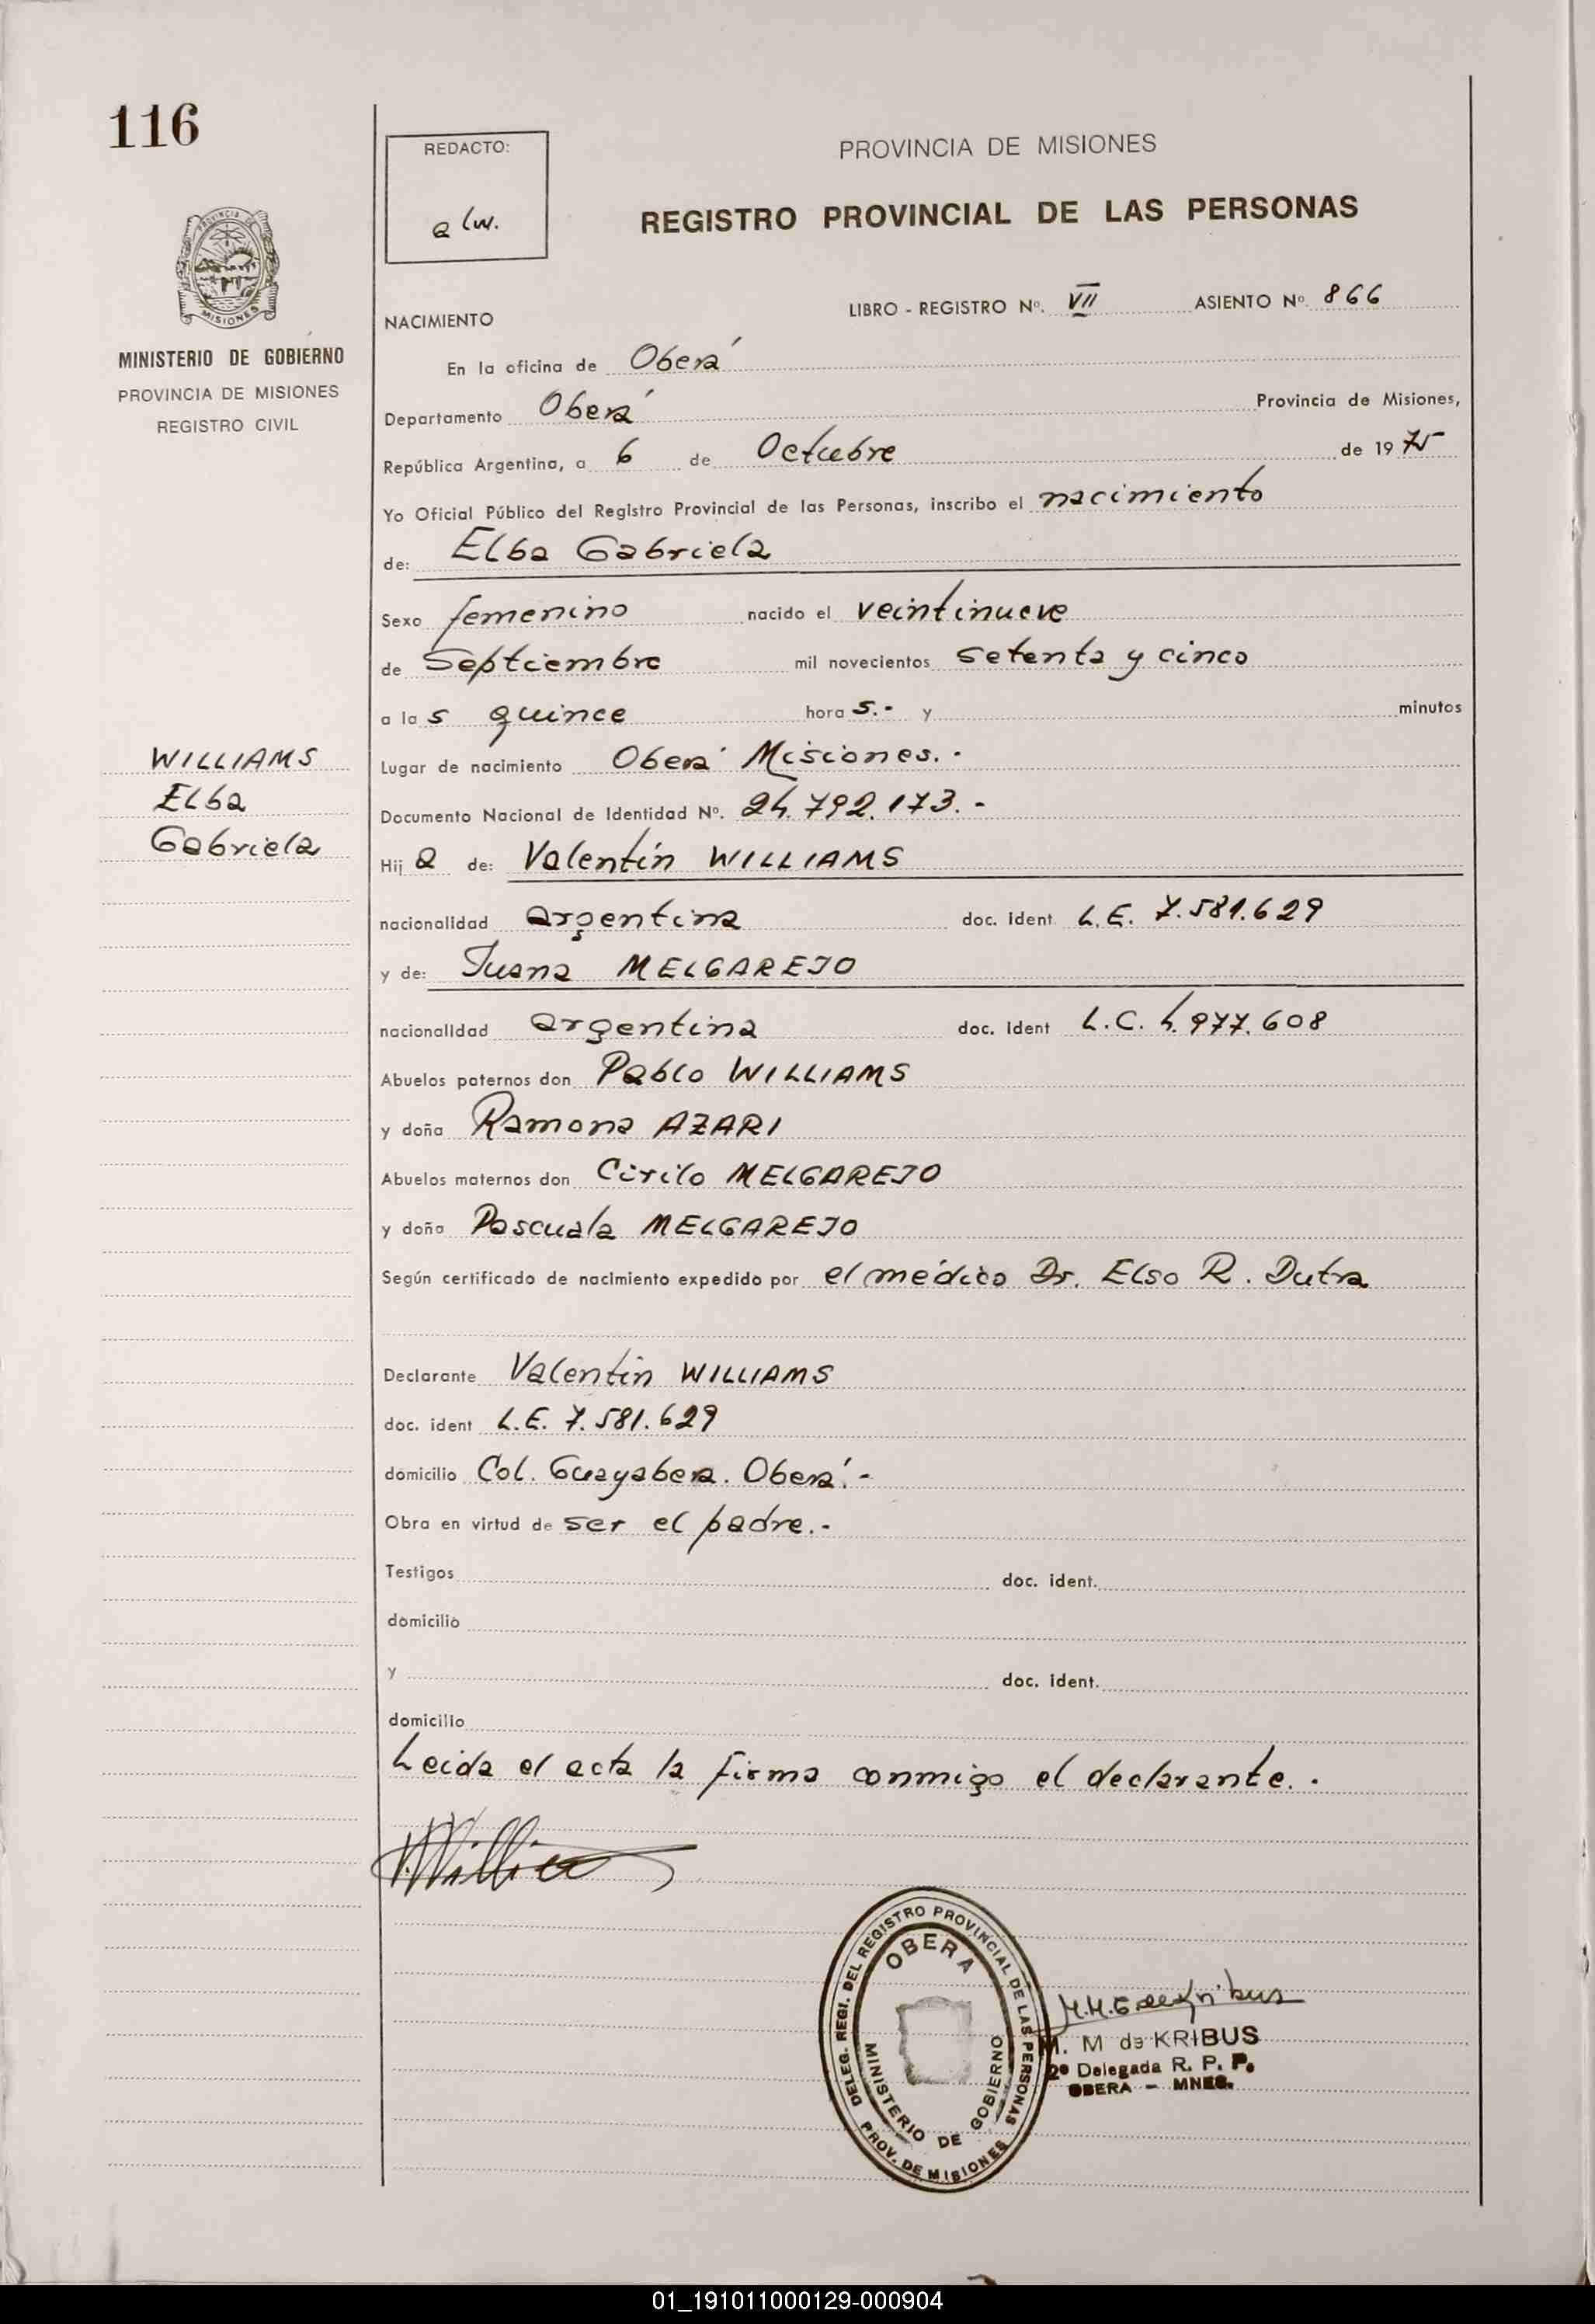 116
REDACTO:
alw.
PROVINCIA DE MISIONES
REGISTRO PROVINCIAL DE LAS PERSONAS
PROVINCIA DE
MISIONES
MINISTERIO DE GOBIERNO
PROVINCIA DE MISIONES
REGISTRO CIVIL
LIBRO - REGISTRO Nº. VII ASIENTO Nº. 866
NACIMIENTO
En la oficina de Oberá
Departamento Oberá Provincia de Misiones,
República Argentina, a 6 de Octubre de 1975
Yo Oficial Público del Registro Provincial de las Personas, inscribo el nacimiento
de: Elba Gabriela
Sexo femenino nacido el veintinueve
de Septiembre mil novecientos setenta y cinco
a las quince horas.- y minutos
WILLIAMS
Elba
Gabriela
Lugar de nacimiento Oberá Misiones.-
Documento Nacional de Identidad Nº. 24.792.173.-
Hija de: Valentín WILLIAMS
nacionalidad argentina doc. ident L.E. 7.581.629
y de: Juana MELGAREJO
nacionalidad argentina doc. ident L.C. 4.977.608
Abuelos paternos don Pablo WILLIAMS
y doña Ramona AZARI
Abuelos maternos don Cirilo MELGAREJO
y doña Pascuala MELGAREJO
Según certificado de nacimiento expedido por el médico Dr. Elso R. Dutra
Declarante Valentín WILLIAMS
doc. ident L.E. 7.581.629
domicilio Col. Guayabera. Oberá.-
Obra en virtud de ser el padre.-
Testigos doc. ident.
domicilio
y doc. ident.
domicilio
Leida el acta la firma conmigo el declarante.-
DELEG. REGI. DEL REGISTRO PROVINCIAL DE LAS PERSONAS
OBERA
MINISTERIO DE GOBIERNO
PROV. DE MISIONES
M. M de KRIBUS
2º Delegada R. P. P.
OBERA - MNES.
01_191011000129-000904